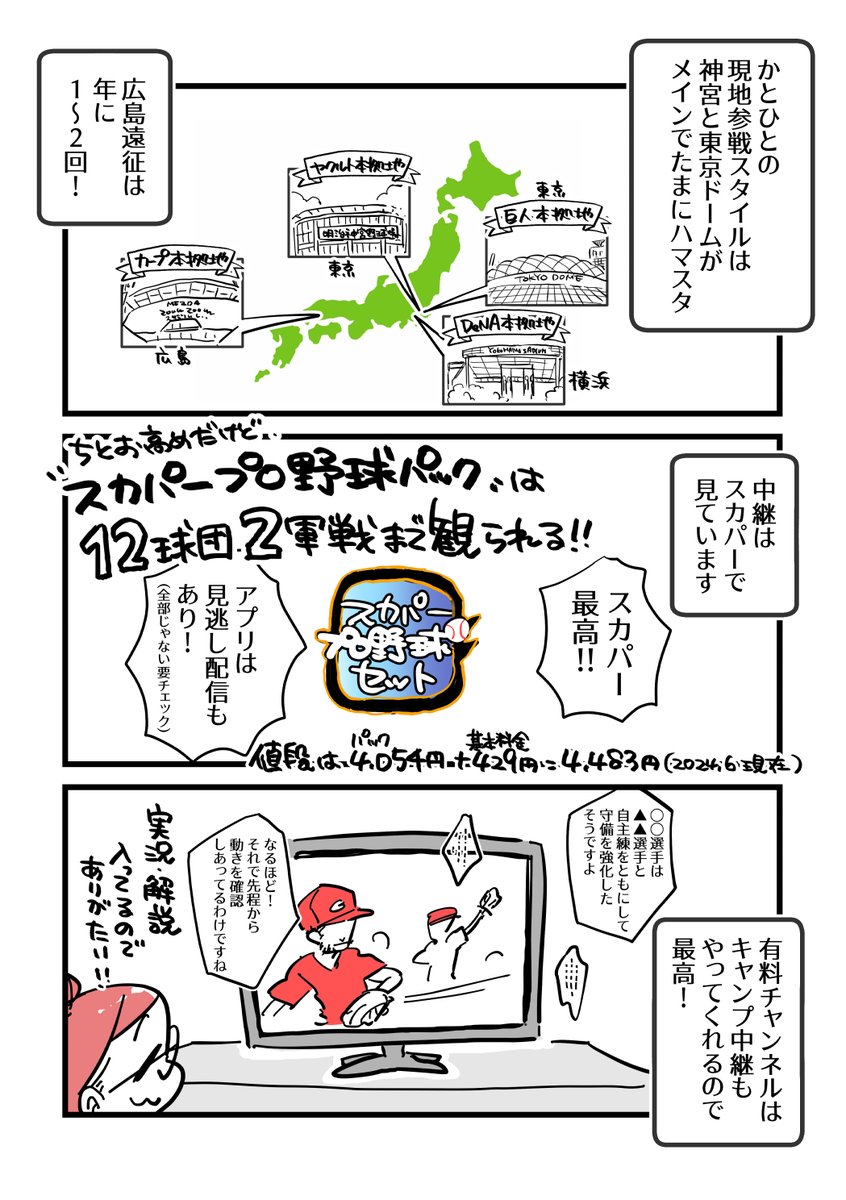 かとひとの
現地参戦スタイルは
神宮と東京ドームが
メインでたまにハマスタ
広島遠征は
年に
1〜2回!
東京
巨人本拠地
TOKYO DOME
ヤクルト本拠地
明治神宮野球場
東京
カープ本拠地
広島
DeNA本拠地
YOKOHAMA STADIUM
横浜
中継は
スカパーで
見ています
ちとお高めだけど
スカパープロ野球パックは
12球団.2軍戦まで観られる!!
スカパー
最高!!
スカパー
プロ野球
セット
アプリは
見逃し配信も
あり!
(全部じゃない要チェック)
パック
基本料金
値段は4,054円+429円に4,483円(2024.6現在)
〇〇選手は
▲▲選手と
自主練をともにして
守備を強化した
そうですよ
なるほど!
それで先程から
動きを確認
しあってるわけですね
実況・解説
入ってるので
ありがたい!!
有料チャンネルは
キャンプ中継も
やってくれるので
最高!